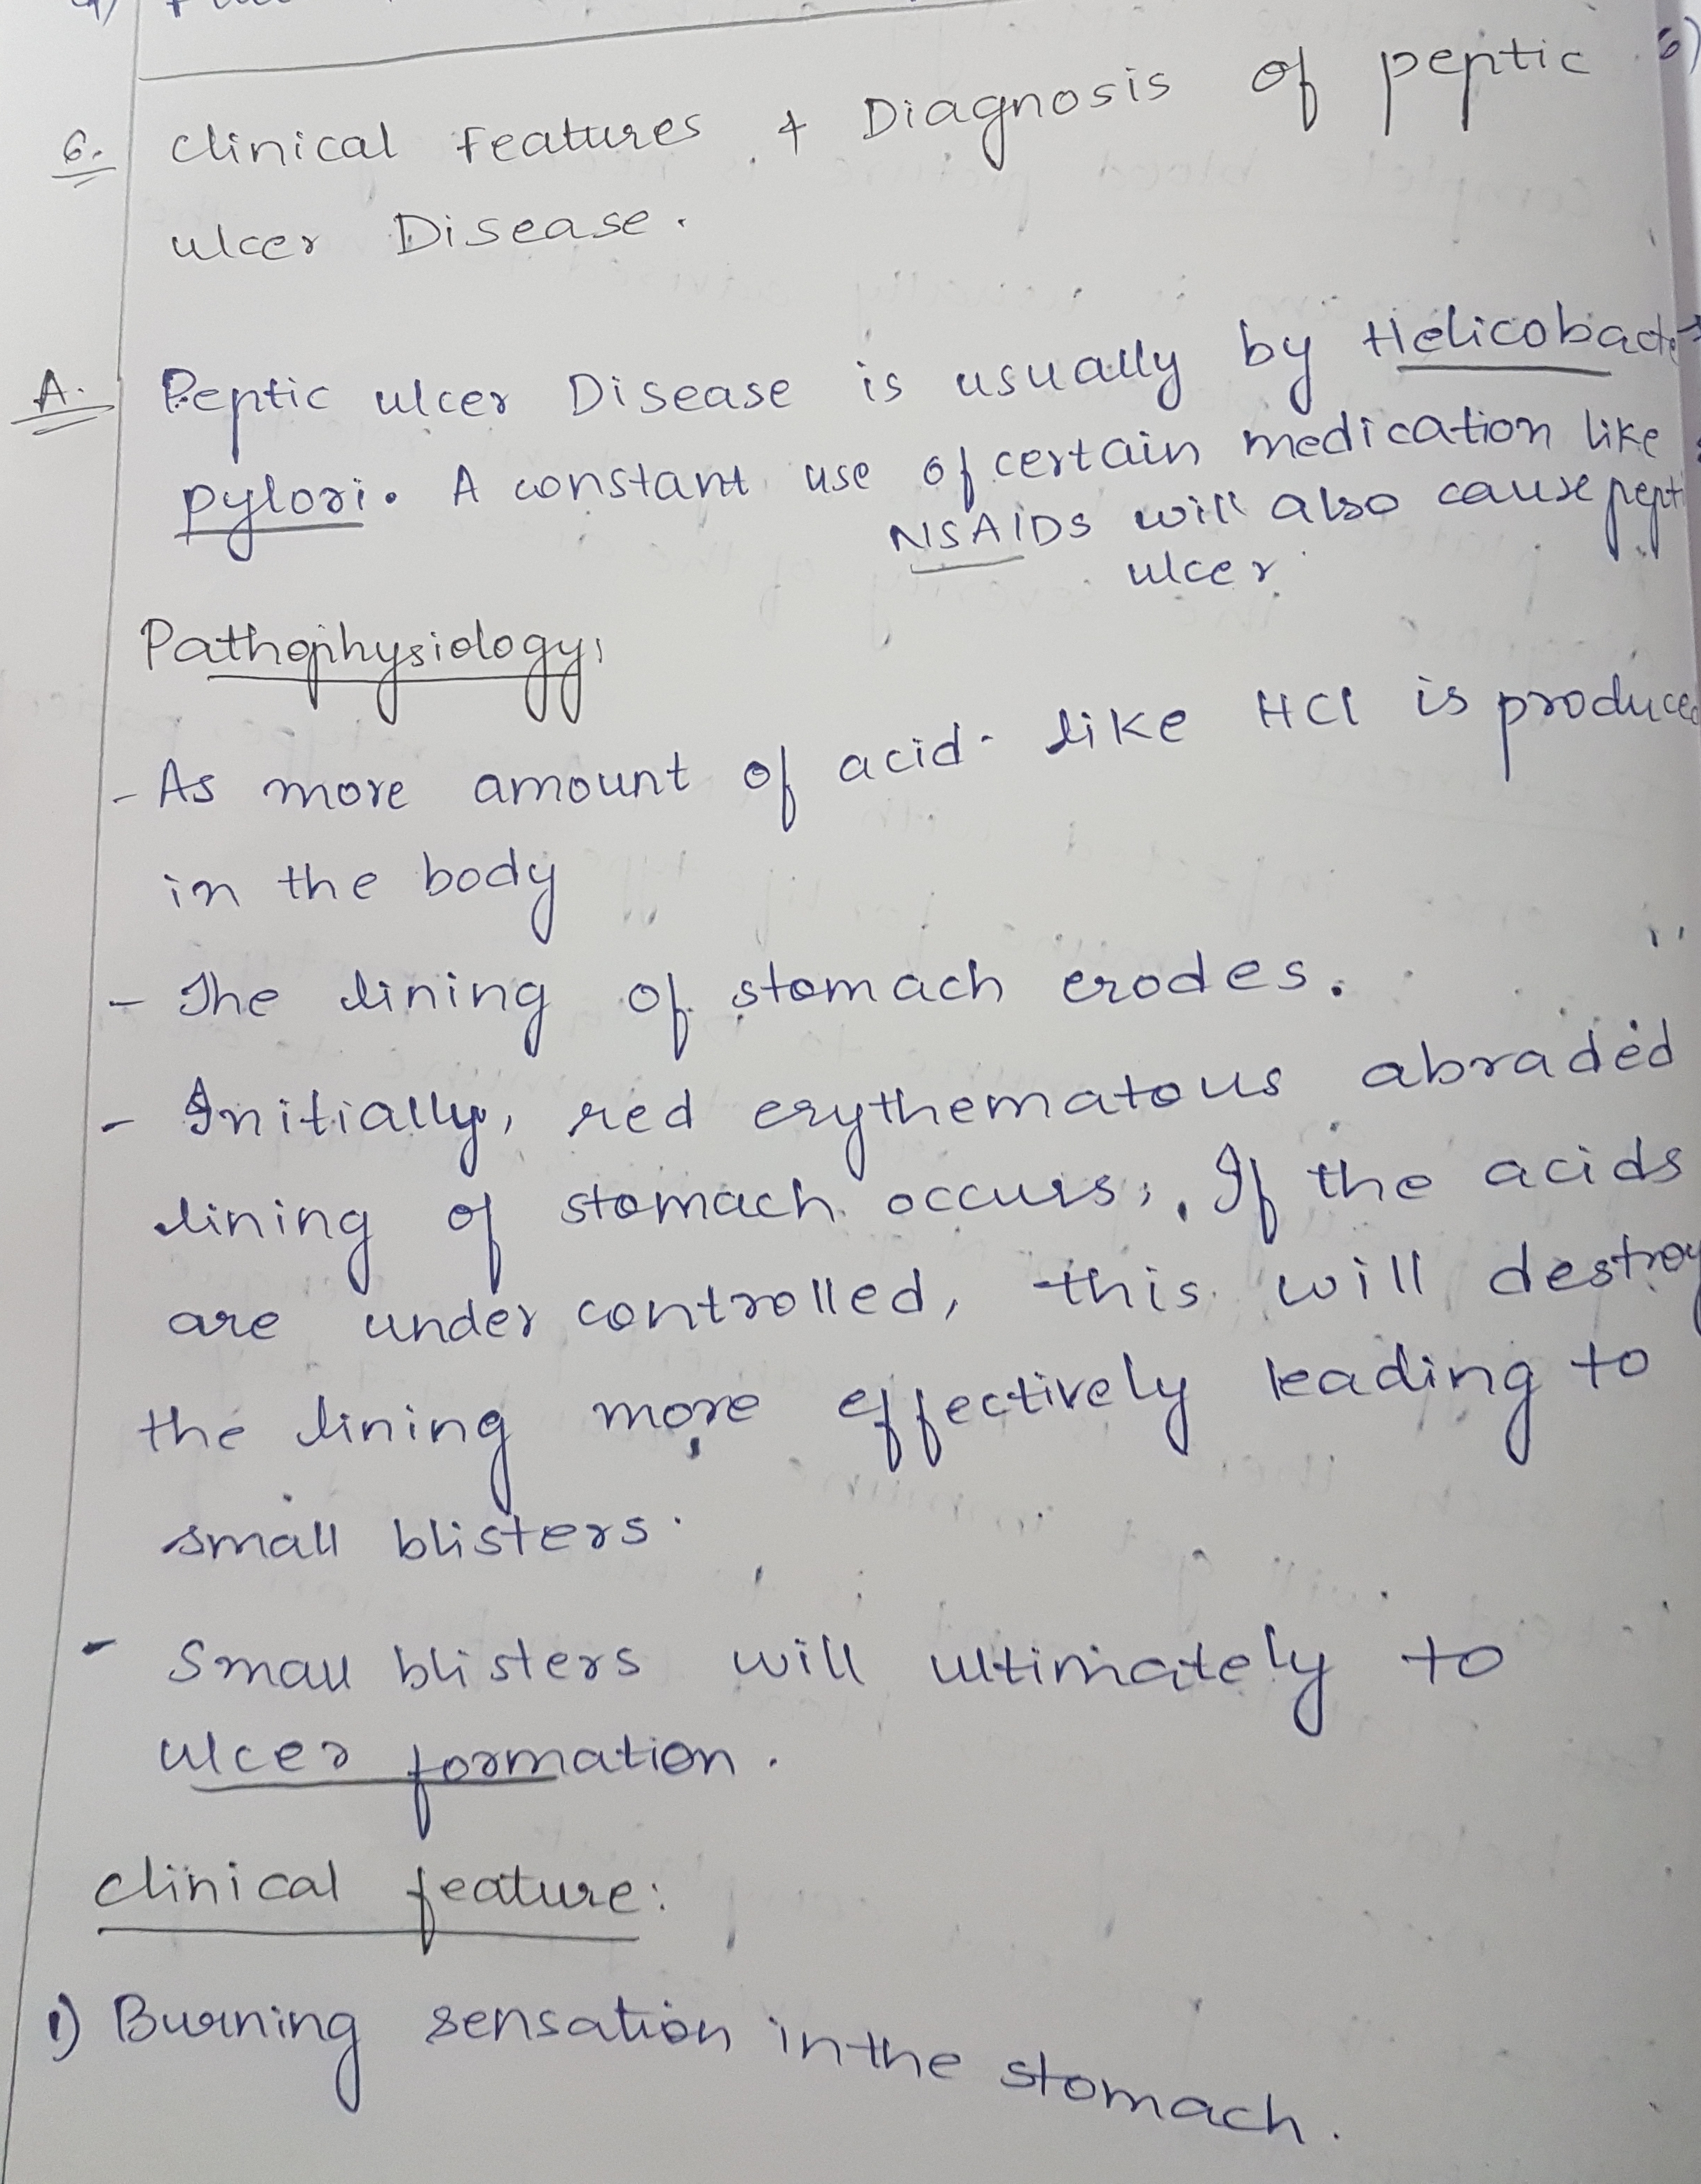 6. Clinical Features & Diagnosis of peptic
ulcer Disease.
A. Peptic ulcer Disease is usually by Helicobacter
pylori. A constant use of certain medication like
NSAIDS will also cause pept
ulcer
Pathophysiology:
- As more amount of acid like HCl is produced
in the body
- The lining of stomach erodes.
- Initially, red erythematous abraded
lining of stomach occurs. If the acids
are under controlled, this will destroy
the lining more effectively leading to
small blisters.
- Small blisters will ultimately to
ulcer formation.
Clinical feature:
1) Burning sensation in the stomach.